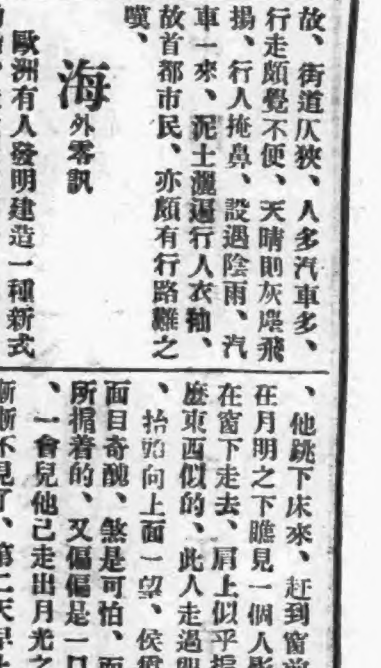 故、街道仄狹、人多汽車多、
行走頗覺不便、天晴則灰塵飛
揚、行人掩鼻、設遇陰雨、汽
車一來、泥土灑遍行人衣袖、
故首都市民、亦頗有行路難之
嘆、
海外零訊
歐洲有人發明建造一種新式
、他跳下床來、赶到窗
在月明之下瞧見一個人影
在窗下走去、肩上似乎掮
麽東西似的、此人走過
、抬頭向上面一望、侯
面目奇醜、煞是可怕、而
所掮着的、又偏偏是一口
、一會兒他已走出月光之
漸漸不見了、第二天早